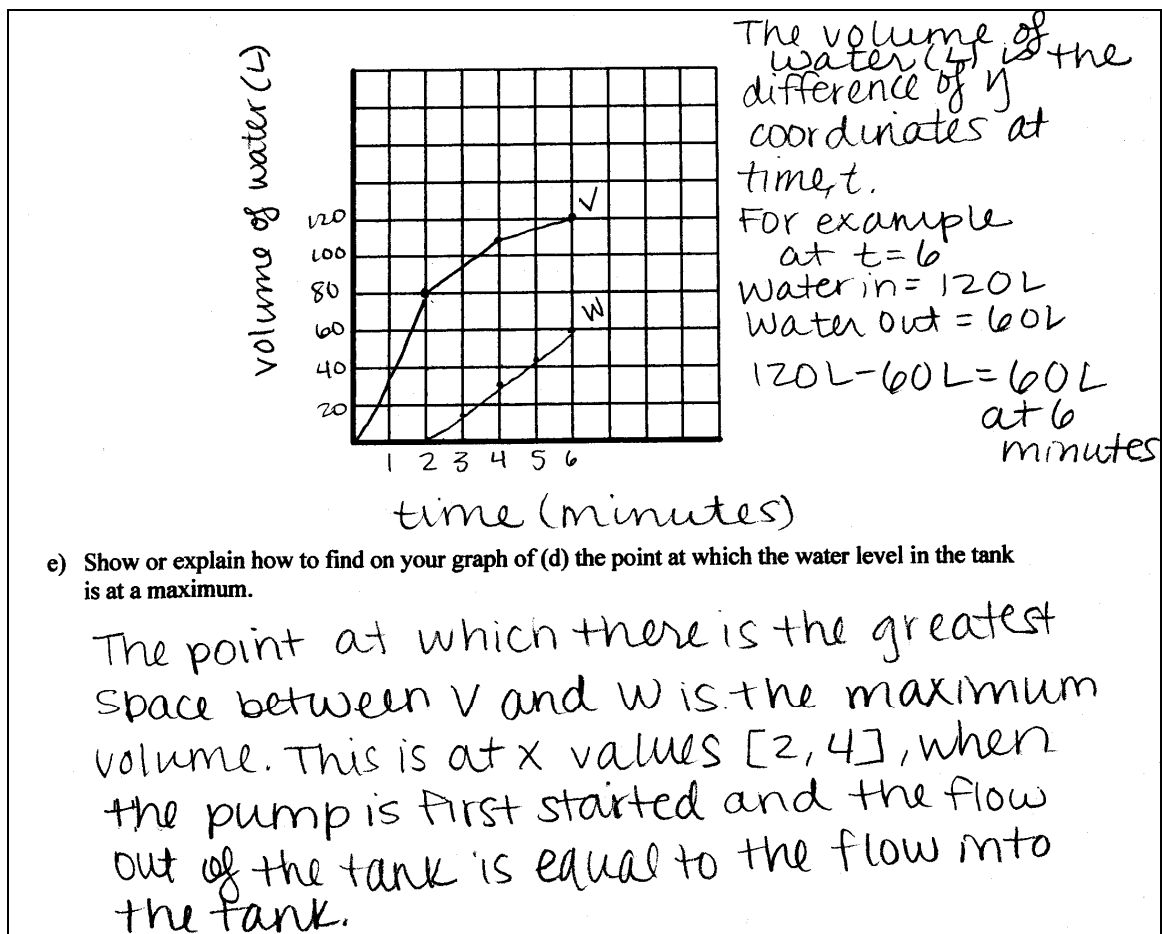 volume of water (L)
120
100
80
60
40
20
V
W
1 2 3 4 5 6
time (minutes)
The volume of
water (L) is the
difference of y
coordinates at
time, t.
For example
at t=6
Water in = 120L
Water out = 60L
120L-60L=60L
at 6
minutes
e) Show or explain how to find on your graph of (d) the point at which the water level in the tank
is at a maximum.
The point at which there is the greatest
space between V and W is the maximum
volume. This is at x values [2,4], when
the pump is first started and the flow
out of the tank is equal to the flow into
the tank.